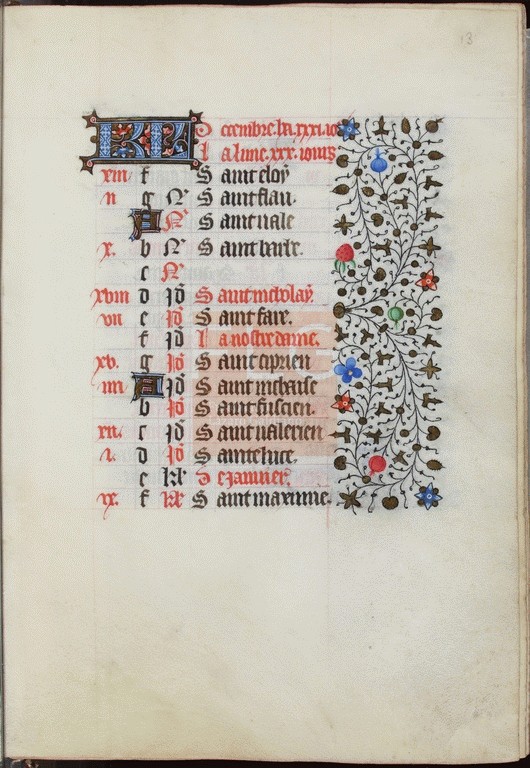 13
KL Decembre. la. xxxi. io
La lune. xxx. iours
xiii f Saint eloy
ii g N Saint flau.
A N Saint uale
x. b N Saint barbe.
c N
xviii d id Saint nicholay.
vii e id Saint fare.
f id La nostre dame.
xv. g id Saint ciprien
iiii A id Saint
b id Saint fuscien.
xii. c id Saint ualerien
i. d id Sainte luce.
e kl De januier.
ix. f kl Saint maximne.